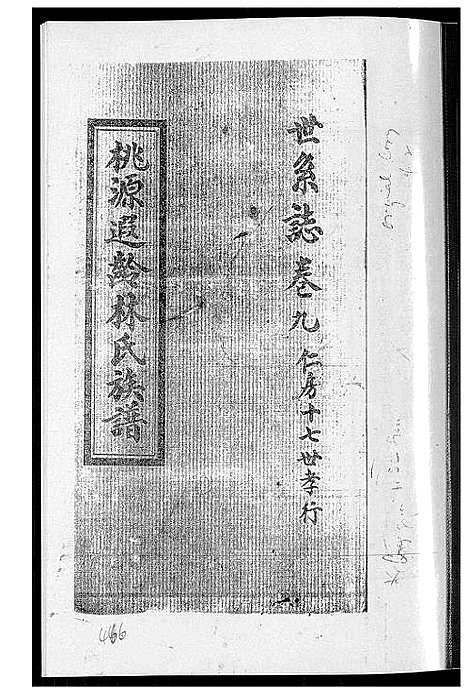 世系誌卷九 仁房十七世孝行
桃源遐齡林氏族譜
466